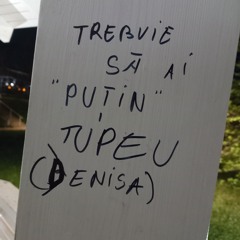 TREBUIE
SĂ AI
"PUȚIN"
TUPEU
(DENISA)